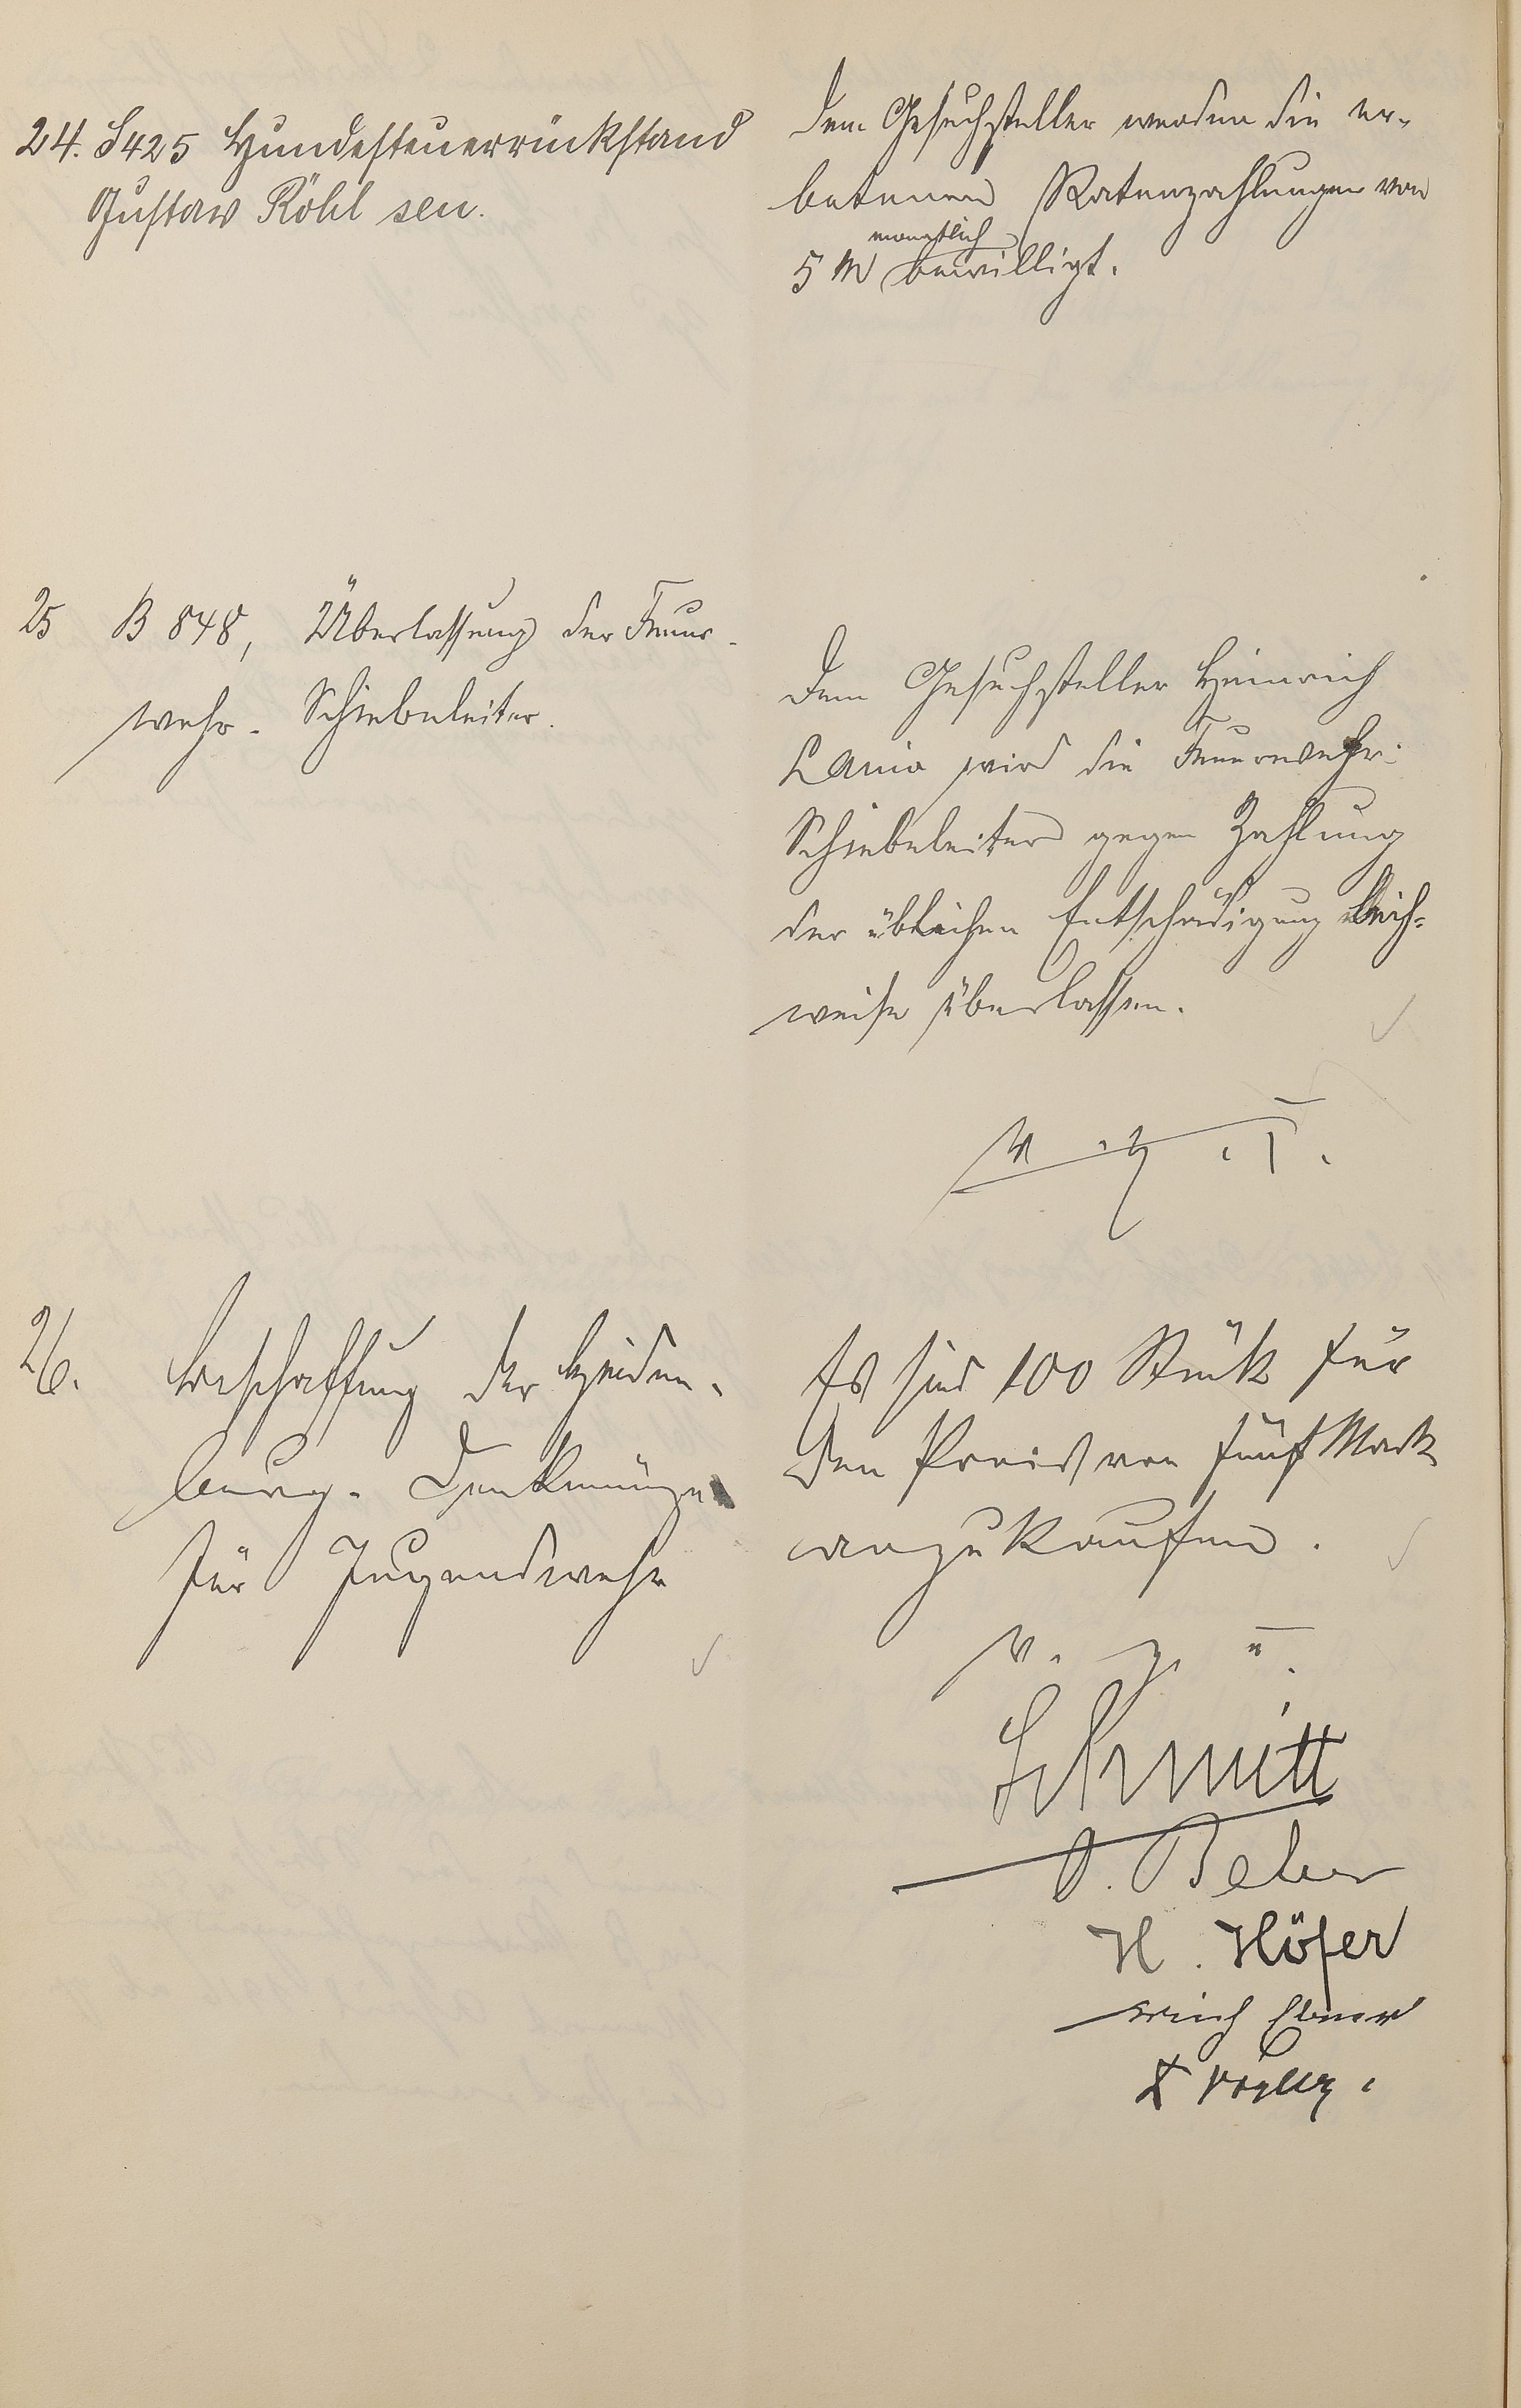 24. S 425 Hundesteuerrückstand
Gustav Röhl sen.
Dem Gesuchsteller werden die er-
betenen Ratenzahlungen von
monatlich
5 M bewilligt.
25 B 848, Überlassung der Feuer-
wehr-Schiebeleiter.
Dem Gesuchsteller Heinrich
wird die Feuerwehr-
Schiebeleiter gegen Zahlung
der üblichen Entschädigung leih-
weise überlassen.
v. g. u.
26. Beschaffung der Hinden-
burg-Denkmünze
für Jugendwehr
Es sind 100 Stück für
den Preis von fünf Mark
anzukaufen.
v. g. u.
Schmitt
H. Höfer